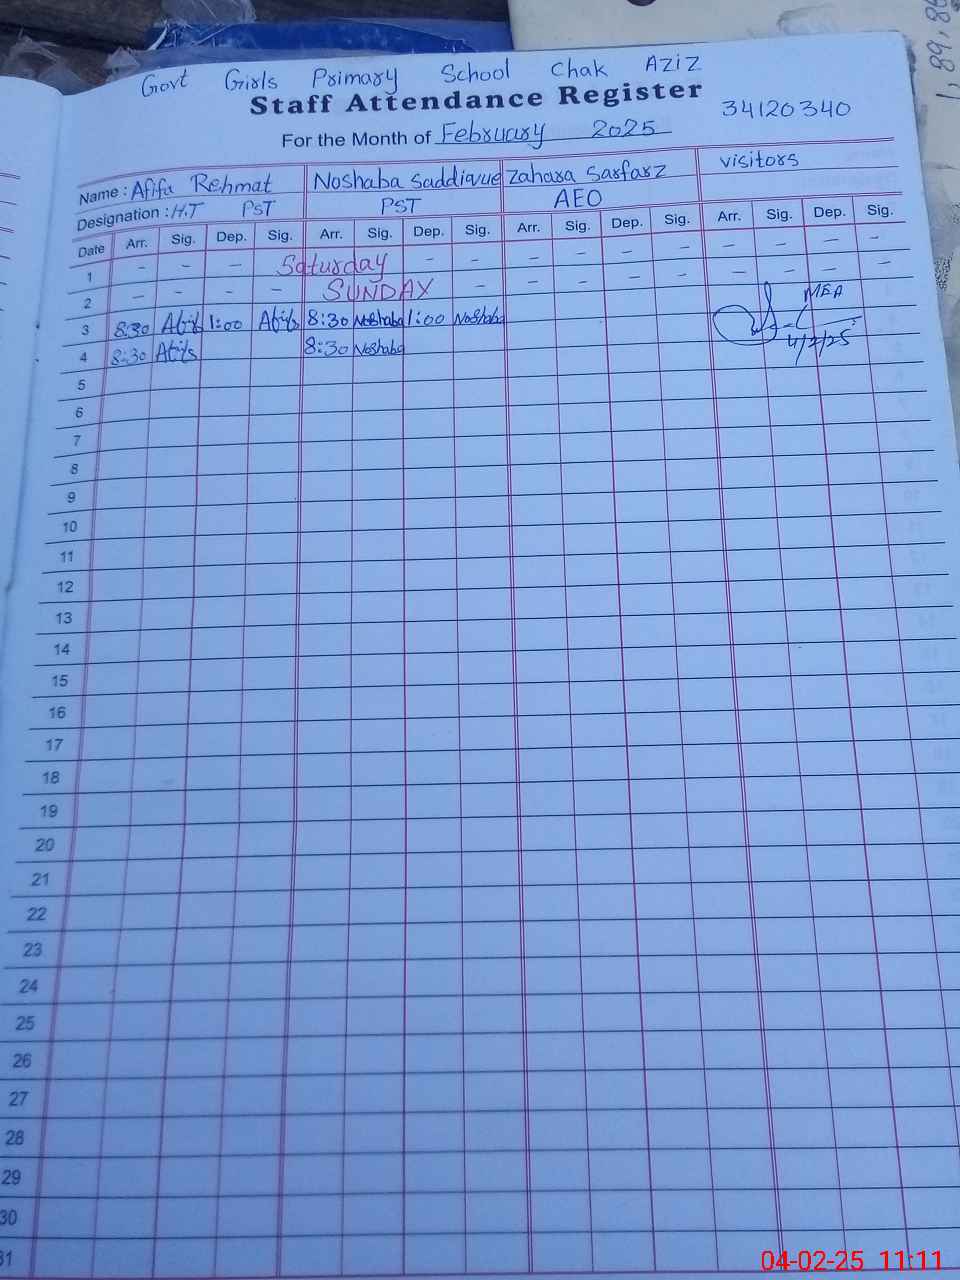 Govt Girls Primary School Chak Aziz
Staff Attendance Register
34120340
For the Month of February 2025
Name : Afifa Rehmat Noshaba Saddique Zahara Sarfarz visitors
Designation : H.T PST PST AEO
Date Arr. Sig. Dep. Sig. Arr. Sig. Dep. Sig. Arr. Sig. Dep. Sig. Arr. Sig. Dep. Sig.
1 - - - Saturday - - - - - - - - - -
2 - - - - SUNDAY - - - - - - - - -
3 8:30 Afifa 1:00 Afifa 8:30 Noshaba 1:00 Noshaba MEA
4 8:30 Afifa 8:30 Noshaba 4/2/25
5
6
7
8
9
10
11
12
13
14
15
16
17
18
19
20
21
22
23
24
25
26
27
28
29
30
31
1,89,86
04-02-25 11:11